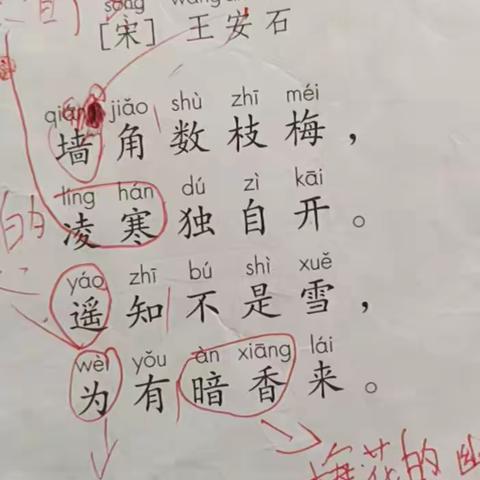 [宋] 王安石
qiáng jiǎo shù zhī méi
墙角数枝梅，
líng hán dú zì kāi
凌寒独自开。
的
yáo zhī bú shì xuě
遥知不是雪，
wèi yǒu àn xiāng lái
为有暗香来。
梅花的幽